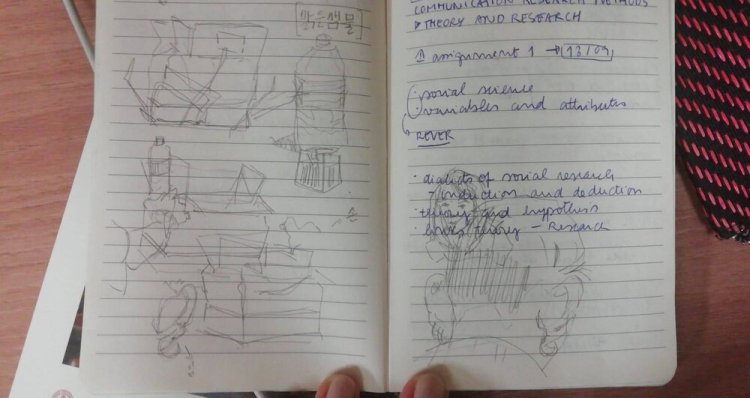 맑은샘물
COMMUNICATION RESEARCH METHODS
THEORY AND RESEARCH
① assignment 1 → 13/09
· social science
· variables and attributes
REVER
· dialects of social research
→ induction and deduction
· theory and hypothesis
· links theory – Research